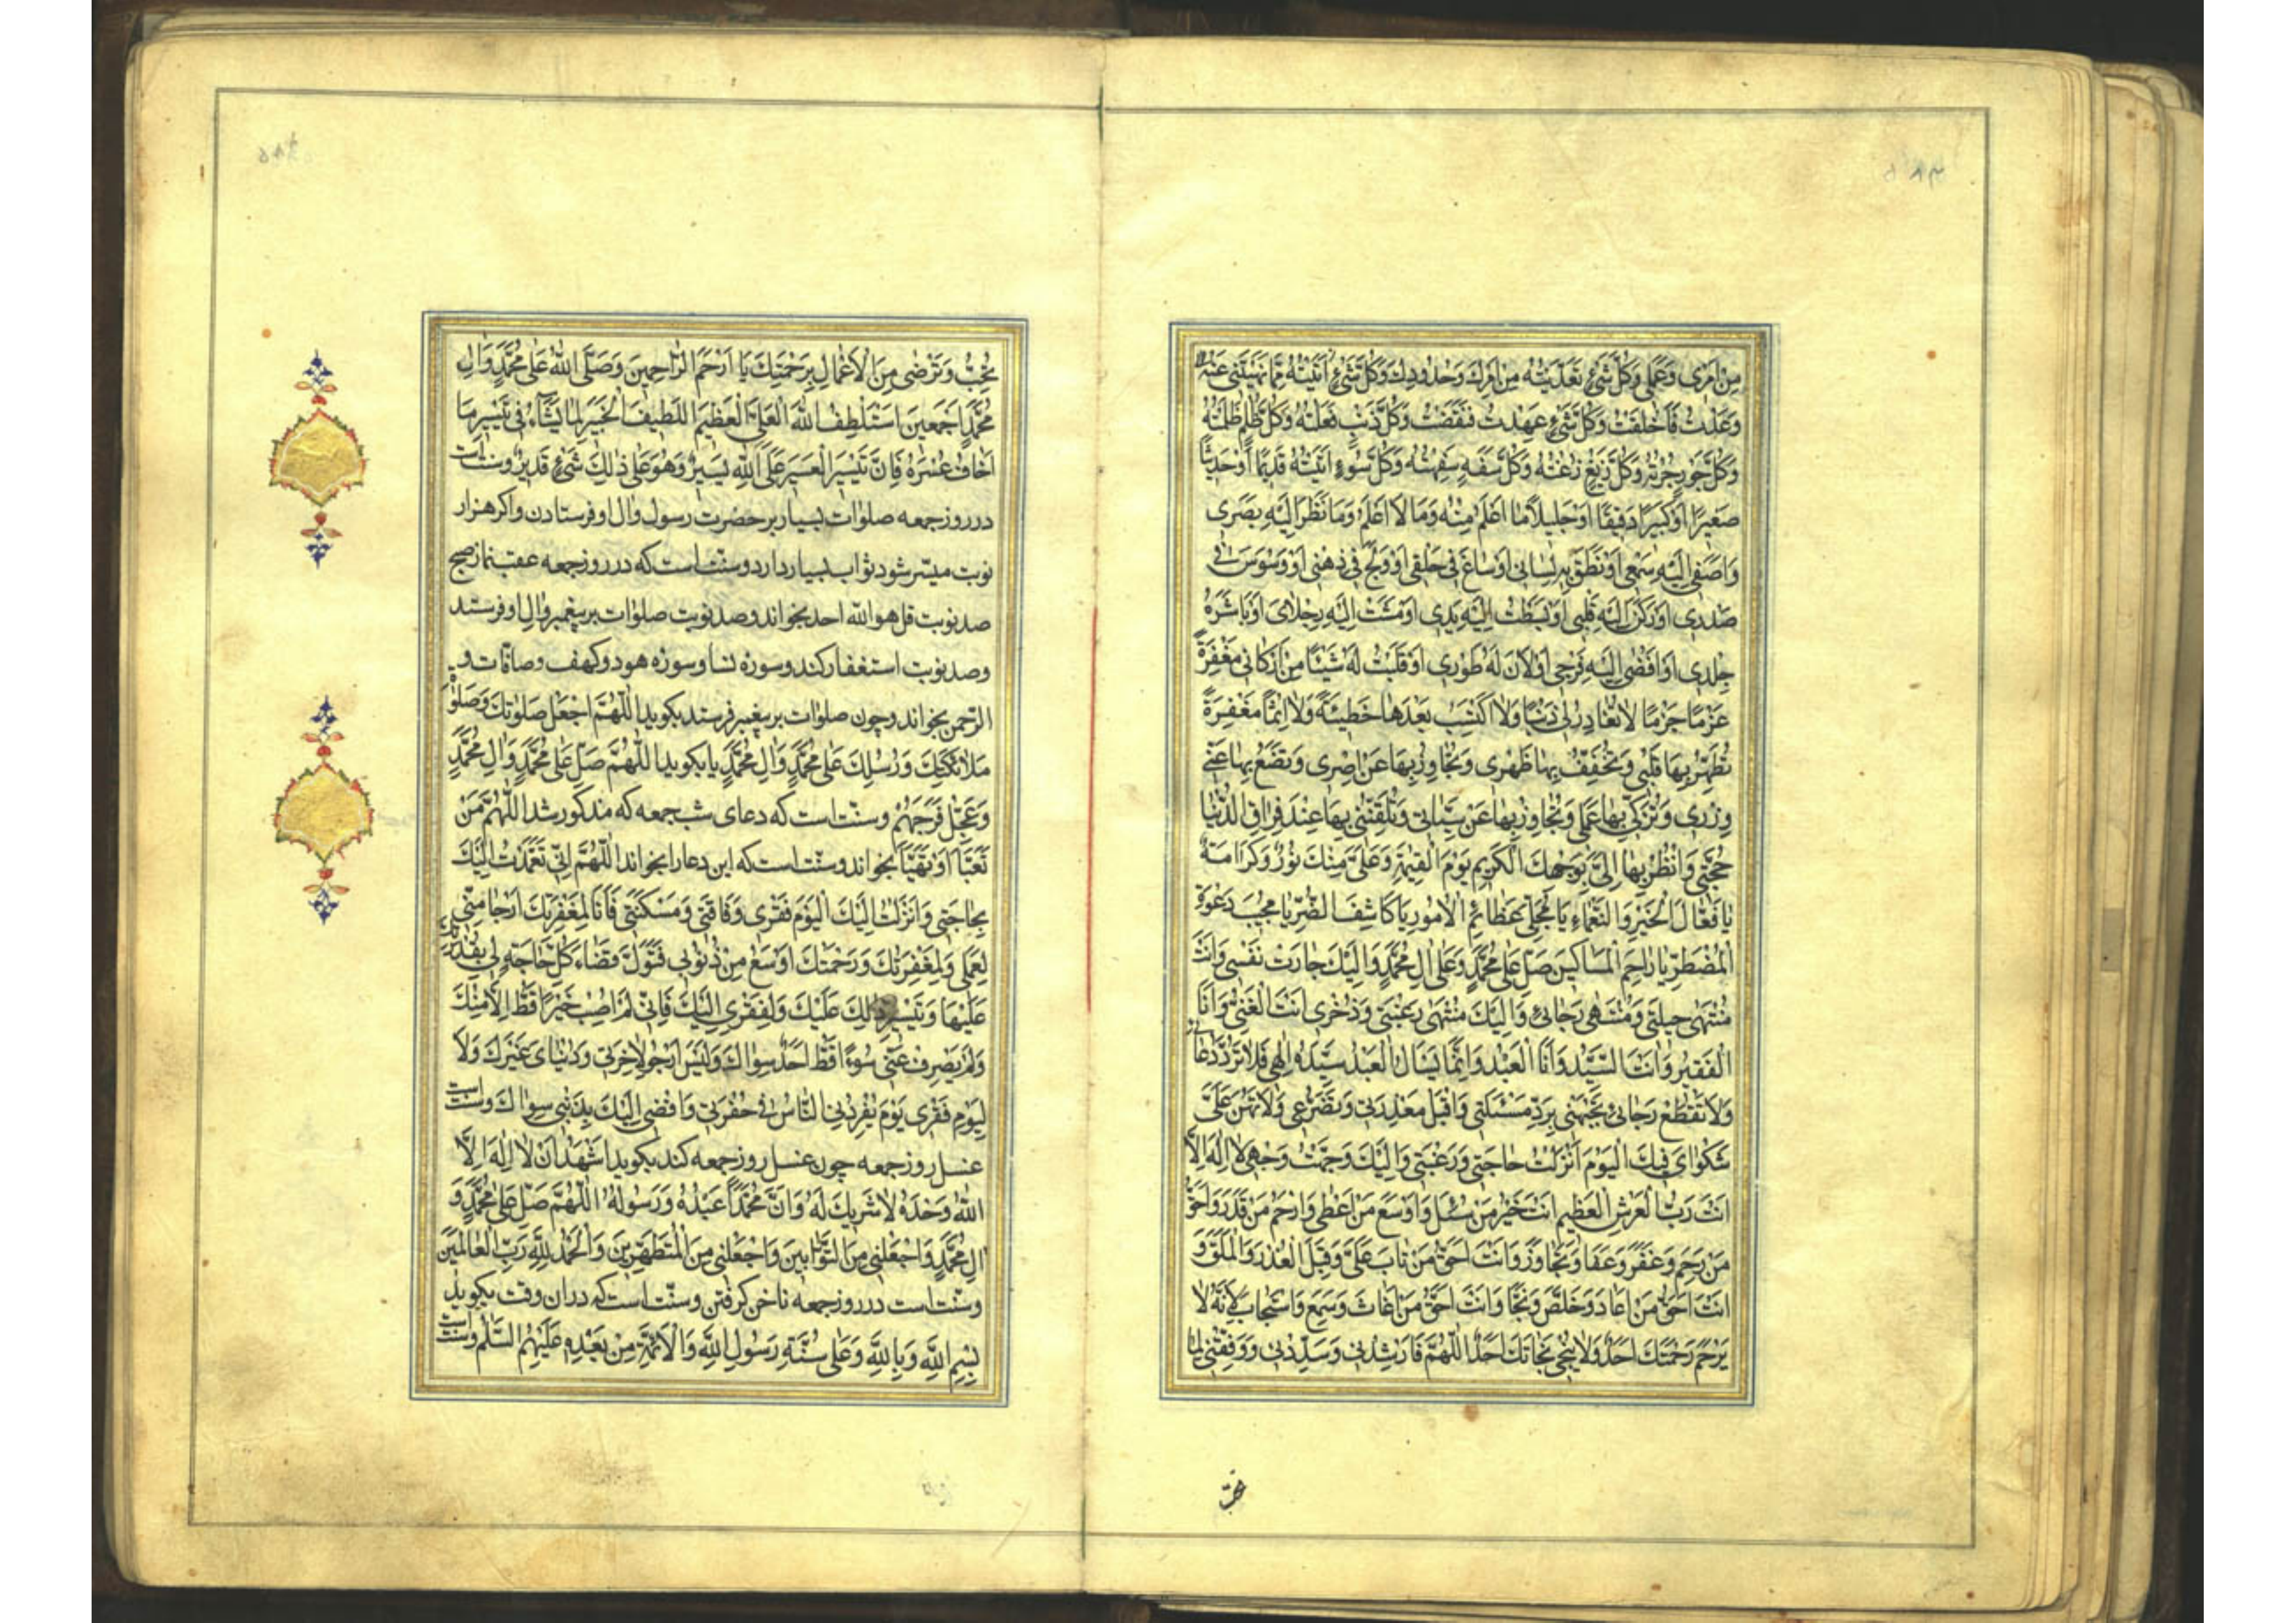 مِنْ اَمْرِی وَعَمَلِی وَکُلَّ شَیْءٍ تَعَدَّیْتُهُ مِنْ اَمْرِکَ وَحُدُودِکَ وَکُلَّ شَیْءٍ اَتَیْتُهُ مِمَّا نَهَیْتَنِی عَنْهُ
وَعَدْتُ فَاَخْلَفْتُ وَکُلَّ شَیْءٍ عَهِدْتُ فَنَقَضْتُ وَکُلَّ ذَنْبٍ فَعَلْتُهُ وَکُلَّ ظُلْمٍ ظَلَمْتُهُ
وَکُلَّ جَوْرٍ جُرْتُهُ وَکُلَّ زَیْغٍ زِغْتُهُ وَکُلَّ سَفَهٍ سَفِهْتُهُ وَکُلَّ سُوءٍ اَتَیْتُهُ قَدِیمًا اَوْ حَدِیثًا
صَغِیرًا اَوْ کَبِیرًا دَقِیقًا اَوْ جَلِیلًا مَا اَعْلَمُ مِنْهُ وَمَا لَا اَعْلَمُ وَمَا نَظَرَ اِلَیْهِ بَصَرِی
وَاَصْغٰی اِلَیْهِ سَمْعِی اَوْ نَطَقَ بِهِ لِسَانِی اَوْ سَاغَ فِی حَلْقِی اَوْ وَلَجَ فِی ذِهْنِی اَوْ وَسْوَسَ فِی
صَدْرِی اَوْ رَکَنَ اِلَیْهِ قَلْبِی اَوْ بَسَطْتُ اِلَیْهِ یَدِی اَوْ مَشَتْ اِلَیْهِ رِجْلَایَ اَوْ بَاشَرَهُ
جِلْدِی اَوْ اَفْضٰی اِلَیْهِ فَرْجِی اَوْ لَانَ لَهُ طَوْرِی اَوْ قَلَبْتُ لَهُ شَیْئًا مِنْ اَرْکَانِی مَغْفِرَةً
عَزْمًا جَزْمًا لَا تُغَادِرُ لِی ذَنْبًا وَلَا اَکْتَسِبُ بَعْدَهَا خَطِیئَةً وَلَا اِثْمًا مَغْفِرَةً
تُطَهِّرُ بِهَا قَلْبِی وَتُخَفِّفُ بِهَا ظَهْرِی وَتَجَاوَزُ بِهَا عَنْ اِصْرِی وَتَضَعُ بِهَا عَنِّی
وِزْرِی وَتُزَکِّی بِهَا عَمَلِی وَتَجَاوَزُ بِهَا عَنْ سَیِّئَاتِی وَتُلَقِّنُنِی بِهَا عِنْدَ فِرَاقِ الدُّنْیَا
حُجَّتِی وَانْظُرْ بِهَا اِلَیَّ بِوَجْهِکَ الْکَرِیمِ یَوْمَ الْقِیٰمَةِ وَعَلَیَّ مِنْکَ نُورٌ وَکَرَامَةٌ
یَا فَعَّالَ الْخَیْرِ وَالنَّعْمَاءِ یَا مُجَلِّیَ عَظَائِمِ الْاُمُورِ یَا کَاشِفَ الضُّرِّ یَا مُجِیبَ دَعْوَةِ
الْمُضْطَرِّ یَا رَاحِمَ الْمَسَاکِینِ صَلِّ عَلٰی مُحَمَّدٍ وَعَلٰی اٰلِ مُحَمَّدٍ وَاِلَیْکَ جَارَتْ نَفْسِی وَاَنْتَ
مُنْتَهٰی حِیلَتِی وَمُنْتَهٰی رَجَائِی وَاِلَیْکَ مُنْتَهٰی رَغْبَتِی وَذُخْرِی اَنْتَ الْغَنِیُّ وَاَنَا
الْفَقِیرُ وَاَنْتَ السَّیِّدُ وَاَنَا الْعَبْدُ وَاِنَّمَا یَسْاَلُ الْعَبْدُ سَیِّدَهُ اِلٰهِی فَلَا تَرُدَّ دُعَائِی
وَلَا تَقْطَعْ رَجَائِی وَلَا تَجْبَهْنِی بِرَدِّ مَسْئَلَتِی وَاقْبَلْ مَعْذِرَتِی وَتَضَرُّعِی وَلَا تَهُنْ عَلَیَّ
شَکْوَایَ فَبِکَ الْیَوْمَ اَنْزَلْتُ حَاجَتِی وَرَغْبَتِی وَاِلَیْکَ وَجَّهْتُ وَجْهِی لَا اِلٰهَ اِلَّا
اَنْتَ رَبُّ الْعَرْشِ الْعَظِیمِ اَنْتَ خَیْرُ مَنْ سُئِلَ وَاَوْسَعُ مَنْ اَعْطٰی وَاَرْحَمُ مَنْ قَدَرَ وَاَحَقُّ
مَنْ رَحِمَ وَغَفَرَ وَعَفَا وَتَجَاوَزَ وَاَنْتَ اَحَقُّ مَنْ تَابَ عَلَیَّ وَقَبِلَ الْعُذْرَ وَالْمَلَقَ وَ
اَنْتَ اَحَقُّ مَنْ اَعَاذَ وَخَلَّصَ وَنَجَّا وَاَنْتَ اَحَقُّ مَنْ اَغَاثَ وَسَمِعَ وَاسْتَجَابَ لِاَنَّهُ لَا
یَرْحَمُ رَحْمَتَکَ اَحَدٌ وَلَا یُنْجِی نَجَاتَکَ اَحَدٌ اَللّٰهُمَّ فَارْشِدْنِی وَسَدِّدْنِی وَوَفِّقْنِی لِمَا
تُحِبُّ وَتَرْضٰی مِنَ الْاَعْمَالِ بِرَحْمَتِکَ یَا اَرْحَمَ الرَّاحِمِینَ وَصَلَّی اللّٰهُ عَلٰی مُحَمَّدٍ وَاٰلِ
مُحَمَّدٍ اَجْمَعِینَ اَسْتَلْطِفُ اللّٰهَ الْعَلِیَّ الْعَظِیمَ اللَّطِیفَ الْخَبِیرَ لِمَا یَشَاءُ فِی تَیْسِیرِ مَا
اَخَافُ عُسْرَهُ فَاِنَّ تَیْسِیرَ الْعَسِیرِ عَلَی اللّٰهِ یَسِیرٌ وَهُوَ عَلٰی ذٰلِکَ شَیْءٍ قَدِیرٌ وسنّت است
در روز جمعه صلوات بسیار بر حضرت رسول وال او فرستادن و اکر هزار
نوبت میسّر شود ثواب بسیار دارد و سنّت است که در روز جمعه عقب نماز صبح
صد نوبت قل هو الله احد بخواند و صد نوبت صلوات بر پیغمبر وال او فرستد
و صد نوبت استغفار کند و سوره نسا و سوره هود و کهف و صافات و
الرّحمن بخواند و چون صلوات بر پیغمبر فرستد بکوید اَللّٰهُمَّ اجْعَلْ صَلَوٰتِکَ وَصَلَوٰةَ
مَلَائِکَتِکَ وَرُسُلِکَ عَلٰی مُحَمَّدٍ وَاٰلِ مُحَمَّدٍ یا بکوید اَللّٰهُمَّ صَلِّ عَلٰی مُحَمَّدٍ وَاٰلِ مُحَمَّدٍ
وَعَجِّلْ فَرَجَهُمْ و سنّت است که دعای شب جمعه که مذکور شد اَللّٰهُمَّ مَنْ
تَعَبَّاَ اَوْ تَهَیَّاَ بخواند و سنّت است که این دعا را بخواند اَللّٰهُمَّ اِنِّی تَعَمَّدْتُ اِلَیْکَ
بِحَاجَتِی وَاَنْزَلْتُ اِلَیْکَ الْیَوْمَ فَقْرِی وَفَاقَتِی وَمَسْکَنَتِی فَاَنَا لِمَغْفِرَتِکَ اَرْجَا مِنِّی
لِعَمَلِی وَلَمَغْفِرَتُکَ وَرَحْمَتُکَ اَوْسَعُ مِنْ ذُنُوبِی فَتَوَلَّ قَضَاءَ کُلِّ حَاجَةٍ لِی بِقُدْرَتِکَ
عَلَیْهَا وَتَیْسِیرِ ذٰلِکَ عَلَیْکَ وَلِفَقْرِی اِلَیْکَ فَاِنِّی لَمْ اُصِبْ خَیْرًا قَطُّ اِلَّا مِنْکَ
وَلَمْ یَصْرِفْ عَنِّی سُوءًا قَطُّ اَحَدٌ سِوَاکَ وَلَیْسَ اَرْجُو لِاٰخِرَتِی وَدُنْیَایَ غَیْرَکَ وَلَا
لِیَوْمِ فَقْرِی یَوْمَ یُفْرِدُنِی النَّاسُ فِی حُفْرَتِی وَاُفْضِی اِلَیْکَ بِذَنْبِی سِوَاکَ و سنّت است
غسل روز جمعه چون غسل روز جمعه کند بکوید اَشْهَدُ اَنْ لَا اِلٰهَ اِلَّا
اللّٰهُ وَحْدَهُ لَا شَرِیکَ لَهُ وَاَنَّ مُحَمَّدًا عَبْدُهُ وَرَسُولُهُ اَللّٰهُمَّ صَلِّ عَلٰی مُحَمَّدٍ وَ
اٰلِ مُحَمَّدٍ وَاجْعَلْنِی مِنَ التَّوَّابِینَ وَاجْعَلْنِی مِنَ الْمُتَطَهِّرِینَ وَالْحَمْدُ لِلّٰهِ رَبِّ الْعَالَمِینَ
و سنّت است در روز جمعه ناخن کرفتن و سنّت است که در ان وقت بکوید
بِسْمِ اللّٰهِ وَبِاللّٰهِ وَعَلٰی سُنَّةِ رَسُولِ اللّٰهِ وَالْاَئِمَّةِ مِنْ بَعْدِهِ عَلَیْهِمُ السَّلٰمُ و سنّت است